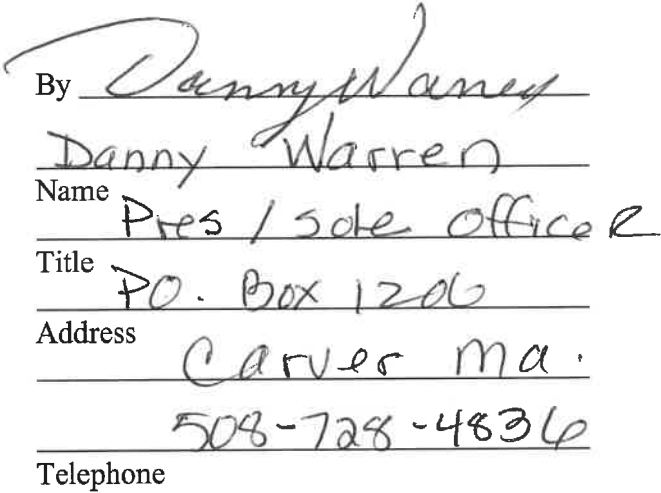 By Danny Warren
Danny Warren
Name
Pres / Sole officeR
Title
PO. Box 1206
Address
Carver Ma.
508-728-4836
Telephone